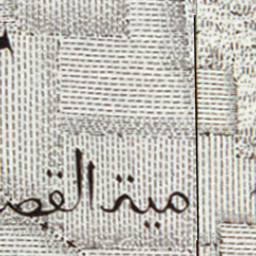 مية القص